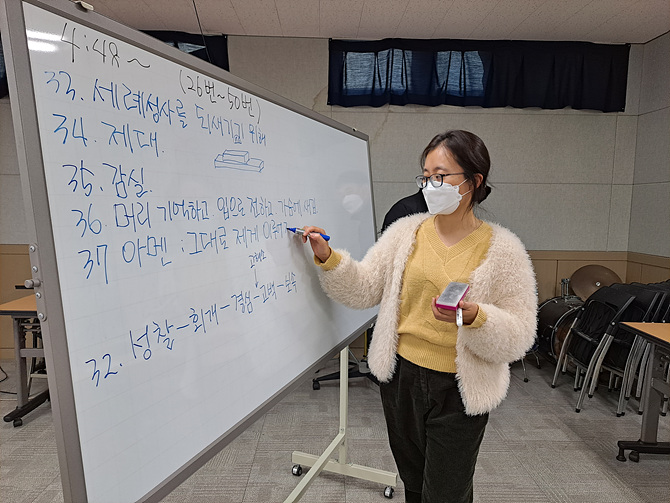 4:48~
(26번~50번)
33. 세례성사를 되새기기 위해
34. 제대.
35. 감실.
36. 머리 기억하고 입으로 전하고 가슴에 새김
37 아멘 : 그대로 제게 이루어
고해소
32. 성찰-회개-결심-고백-보속